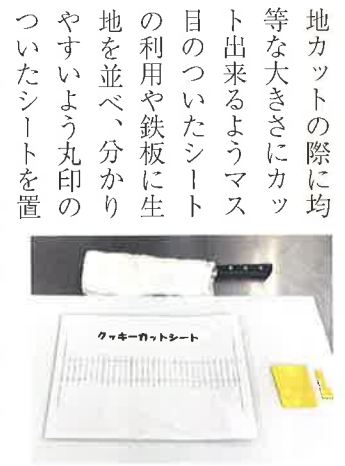 地カットの際に均
等な大きさにカッ
ト出来るようマス
目のついたシート
の利用や鉄板に生
地を並べ、分かり
やすいよう丸印の
ついたシートを置
クッキーカットシート